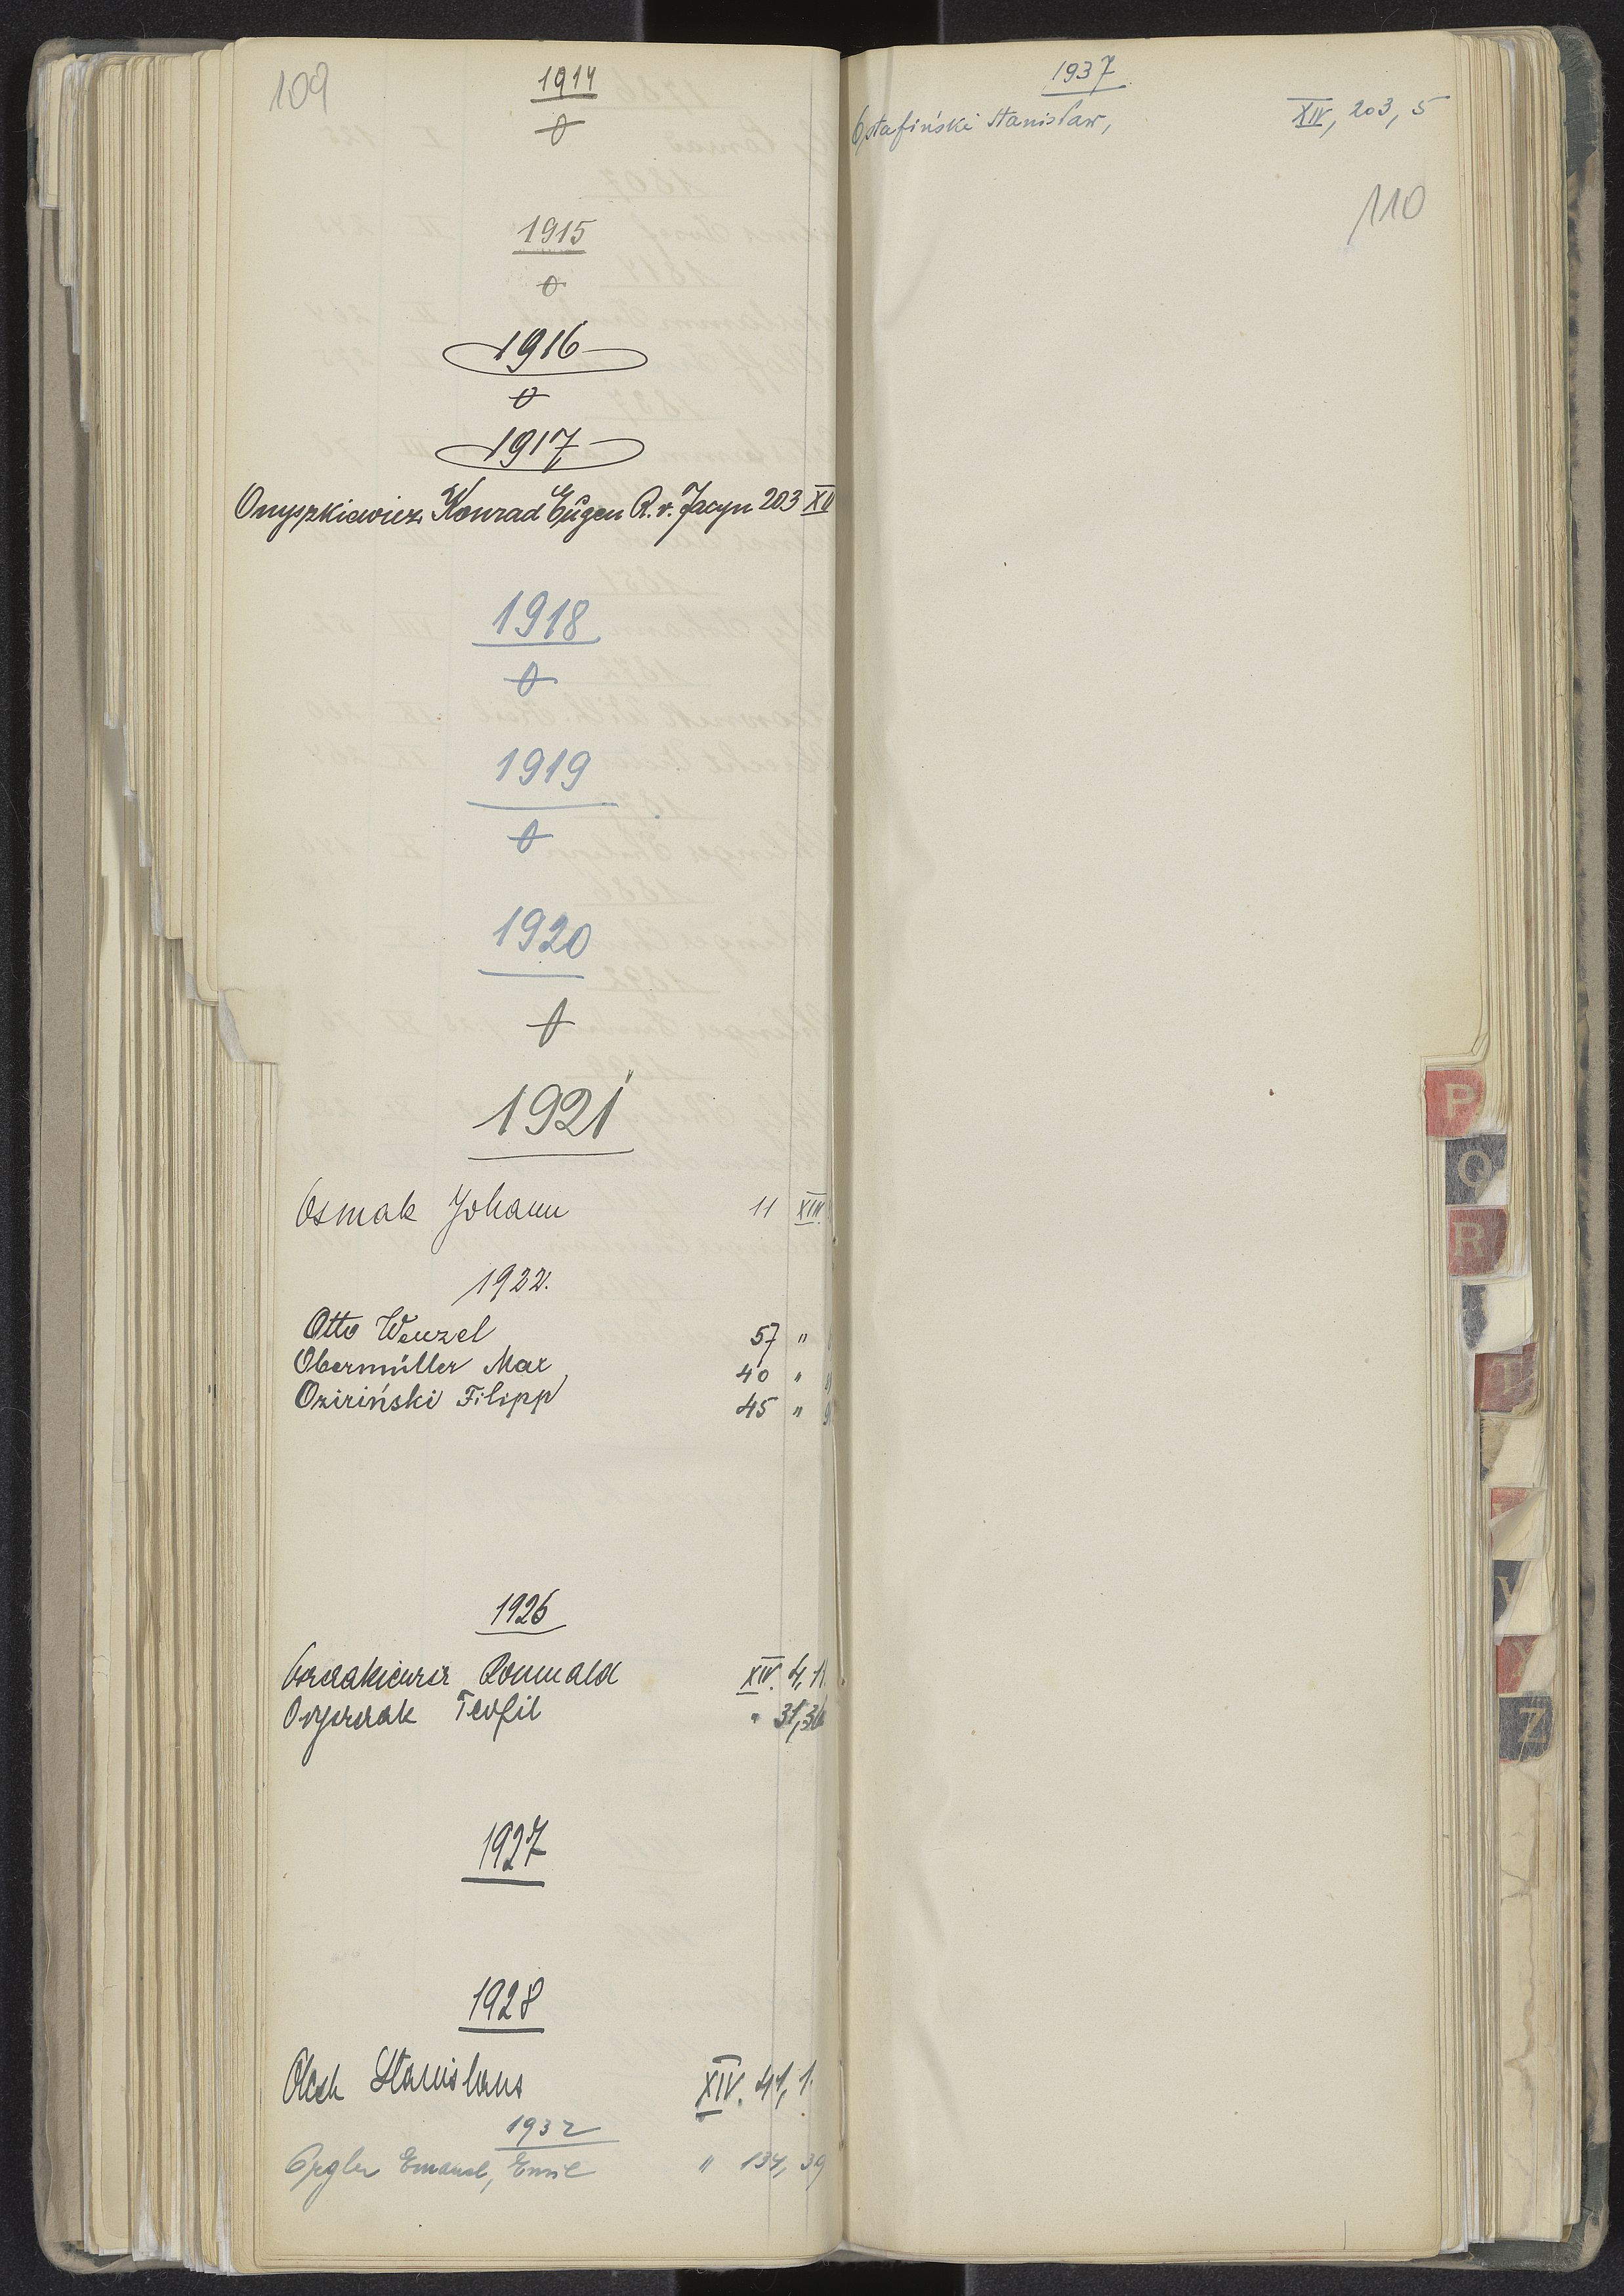 109
1914
0
1915
0
1916
0
1917
Onyszkiewicz Konrad Eugen R. v. Jacyn 203 XII
1918
0
1919
0
1920
0
1921
Osmak Johann 11 XIII
1922.
Otto Wenzel 57 "
Obermüller Max 40 "
Oziriński Filipp 45 "
1926
Romuald XIV. 4, 11
Teofil " 31, 36
1927
1928
Stanislaus XIV. 41, 1.
1932
Emanuel, Emil " 134, 39
1937
Ostafiński Stanisław, XIV, 203, 5
110
P
Q
R
T
V
Z